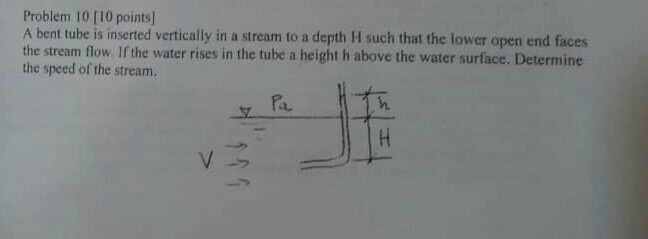 Problem 10 [10 points]
A bent tube is inserted vertically in a stream to a depth H such that the lower open end faces
the stream flow. If the water rises in the tube a height h above the water surface. Determine
the speed of the stream.
Pa
h
H
V